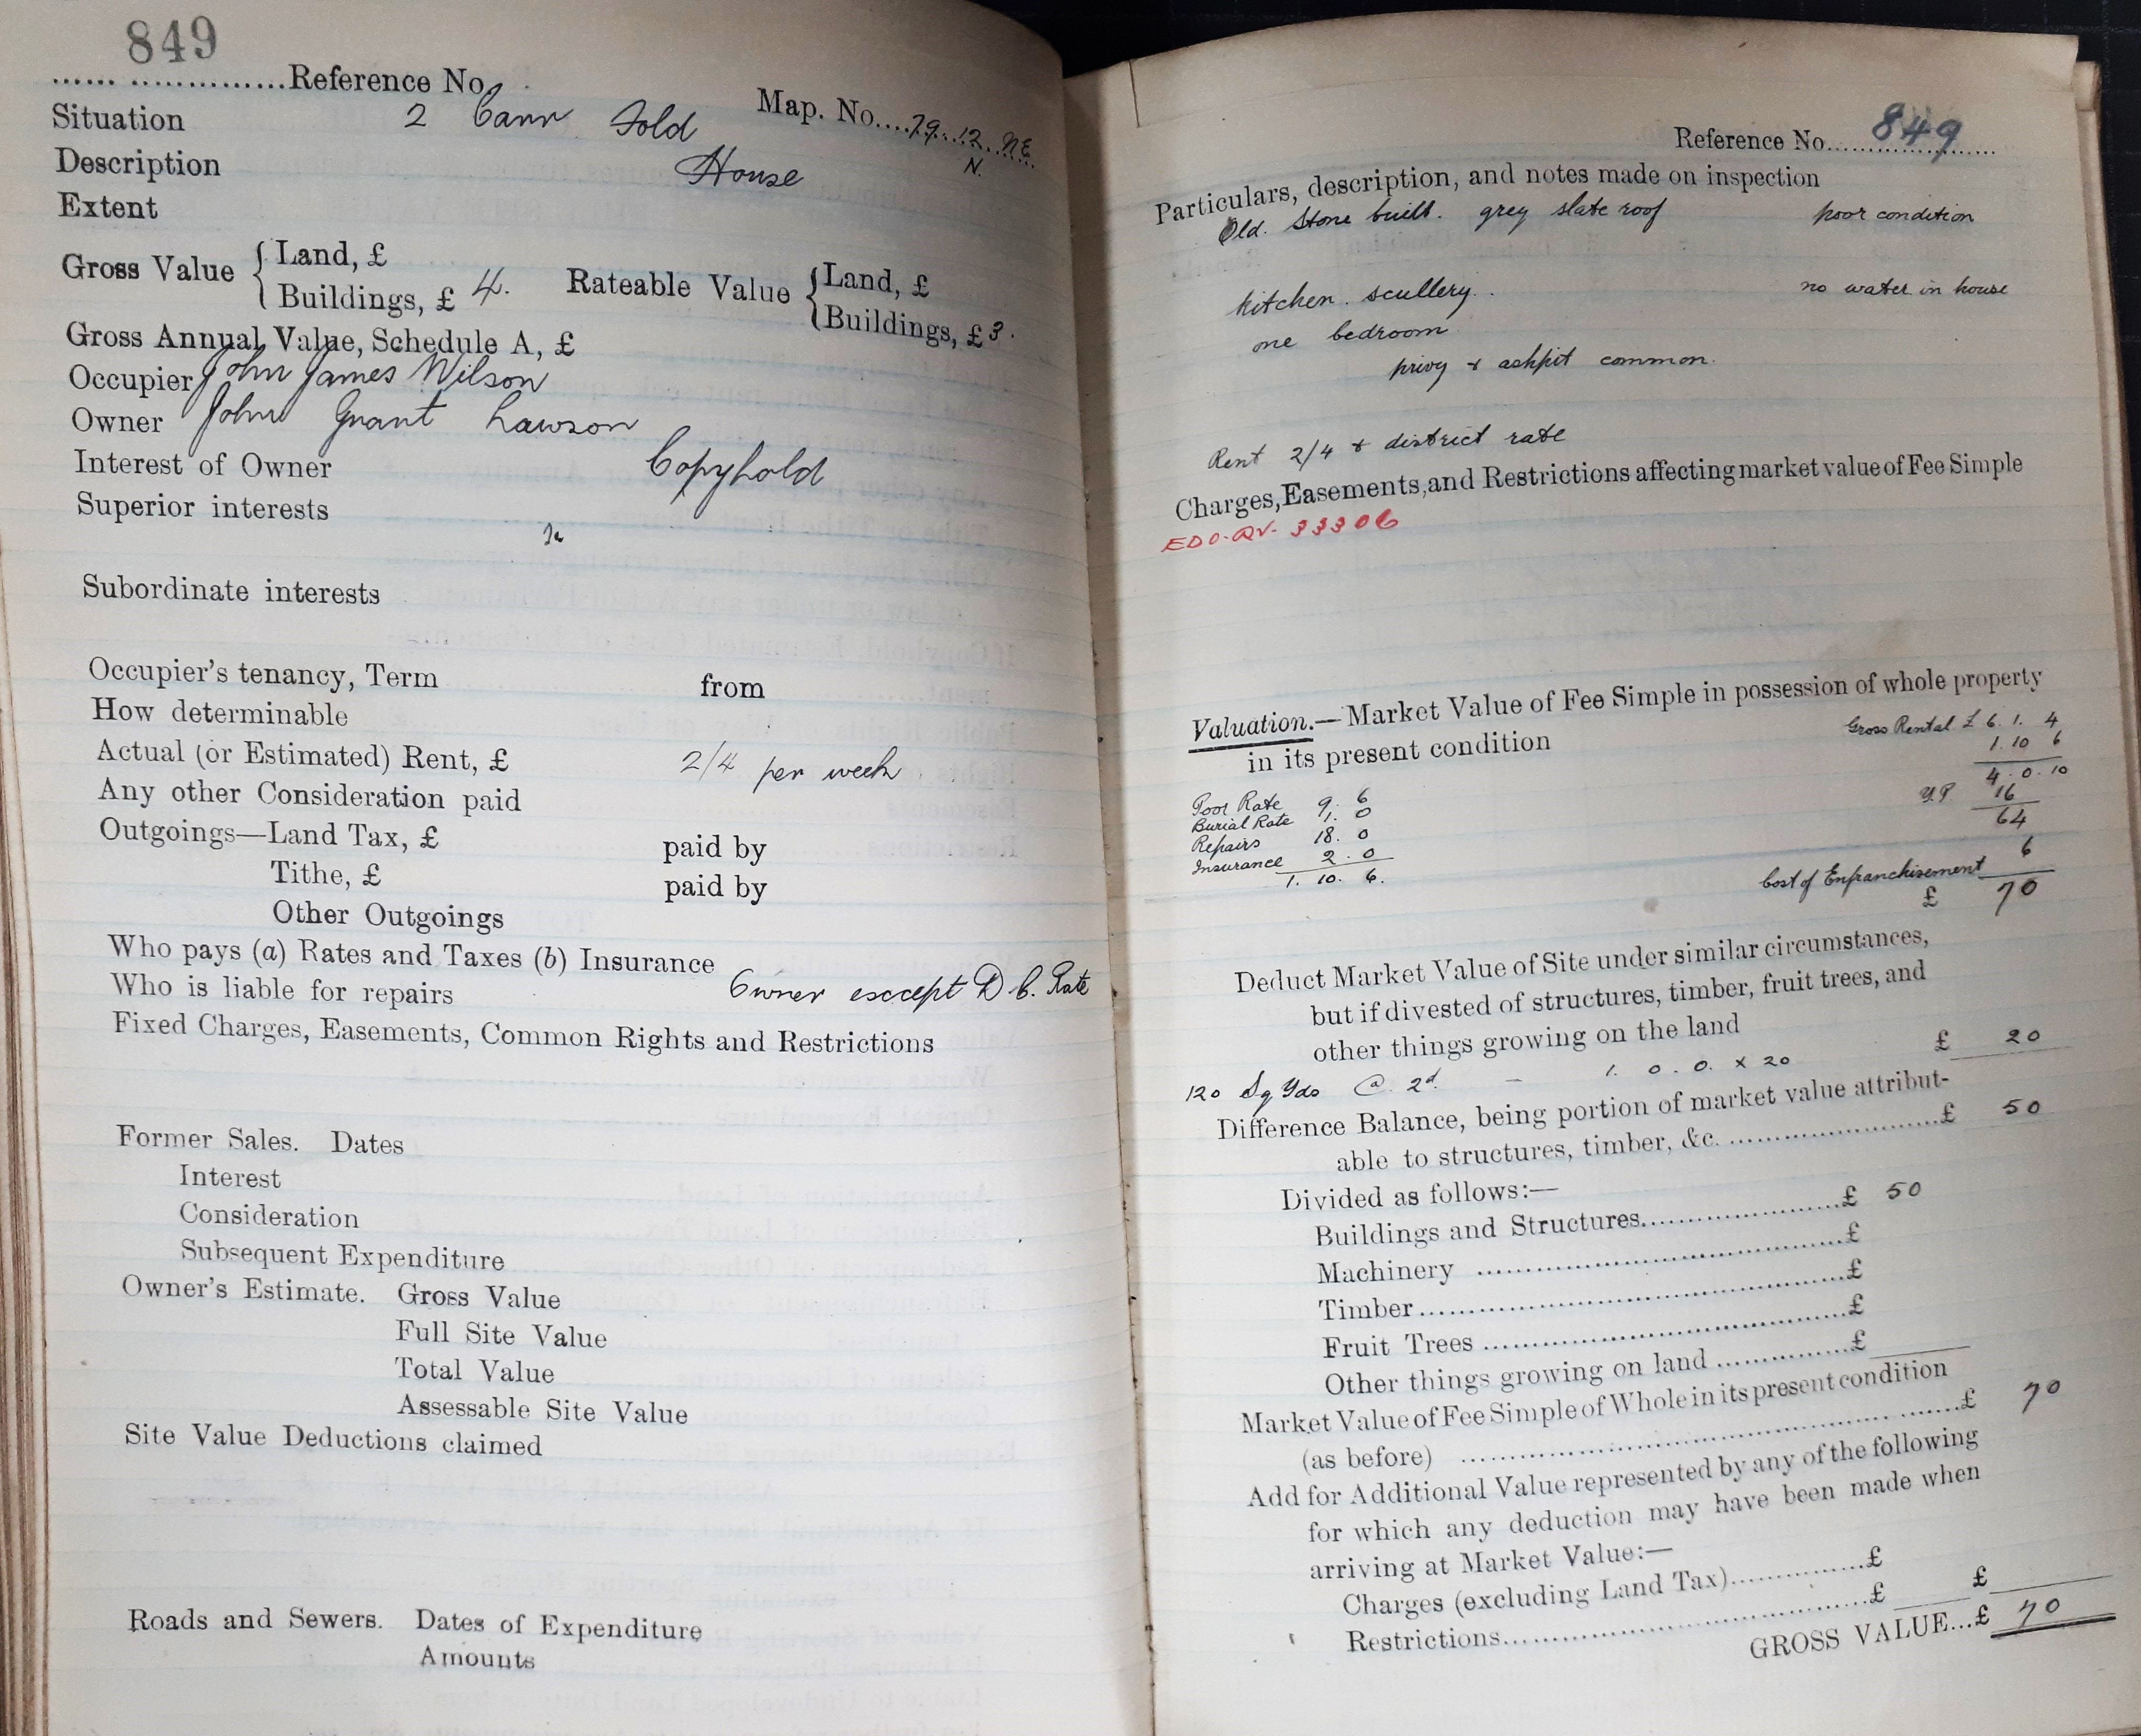 849
...... ..............Reference No.
Map. No....79...12..NE.
N.
Situation 2 Carr Fold
Description House
Extent
Gross Value { Land, £
Buildings, £ 4.
Rateable Value { Land, £
Buildings, £ 3.
Gross Annual Value, Schedule A, £
Occupier John James Wilson
Owner John Grant Lawson
Interest of Owner Copyhold
Superior interests
Subordinate interests
Occupier's tenancy, Term from
How determinable
Actual (or Estimated) Rent, £ 2/4 per week
Any other Consideration paid
Outgoings—Land Tax, £ paid by
Tithe, £ paid by
Other Outgoings
Who pays (a) Rates and Taxes (b) Insurance
Who is liable for repairs Owner except D C. Rate
Fixed Charges, Easements, Common Rights and Restrictions
Former Sales. Dates
Interest
Consideration
Subsequent Expenditure
Owner's Estimate. Gross Value
Full Site Value
Total Value
Assessable Site Value
Site Value Deductions claimed
Roads and Sewers. Dates of Expenditure
Amounts
Reference No. 849
Particulars, description, and notes made on inspection
Old. Stone built. grey slate roof poor condition
kitchen. scullery. no water in house
one bedroom
privy & ashpit common.
Rent 2/4 & district rate
Charges, Easements, and Restrictions affecting market value of Fee Simple
EDO-QV- 33306
Valuation.—Market Value of Fee Simple in possession of whole property
in its present condition
Gross Rental £ 6. 1. 4
1. 10 6
4. 0. 10
Y.P 16
64
6
Cost of Enfranchisement
£ 70
Poor Rate 9. 6
Burial Rate 1. 0
Repairs 18. 0
Insurance 2. 0
1. 10. 6.
Deduct Market Value of Site under similar circumstances,
but if divested of structures, timber, fruit trees, and
other things growing on the land £ 20
120 Sq Yds @ 2d. – 1. 0. 0. x 20
Difference Balance, being portion of market value attribut-
able to structures, timber, &c. ........................£ 50
Divided as follows:—
Buildings and Structures......................£ 50
Machinery ..........................................£
Timber..................................................£
Fruit Trees ..........................................£
Other things growing on land ...............£
Market Value of Fee Simple of Whole in its present condition
(as before) ..................................................£ 70
Add for Additional Value represented by any of the following
for which any deduction may have been made when
arriving at Market Value:—
Charges (excluding Land Tax)...............£
Restrictions..........................................£ £
GROSS VALUE...£ 70